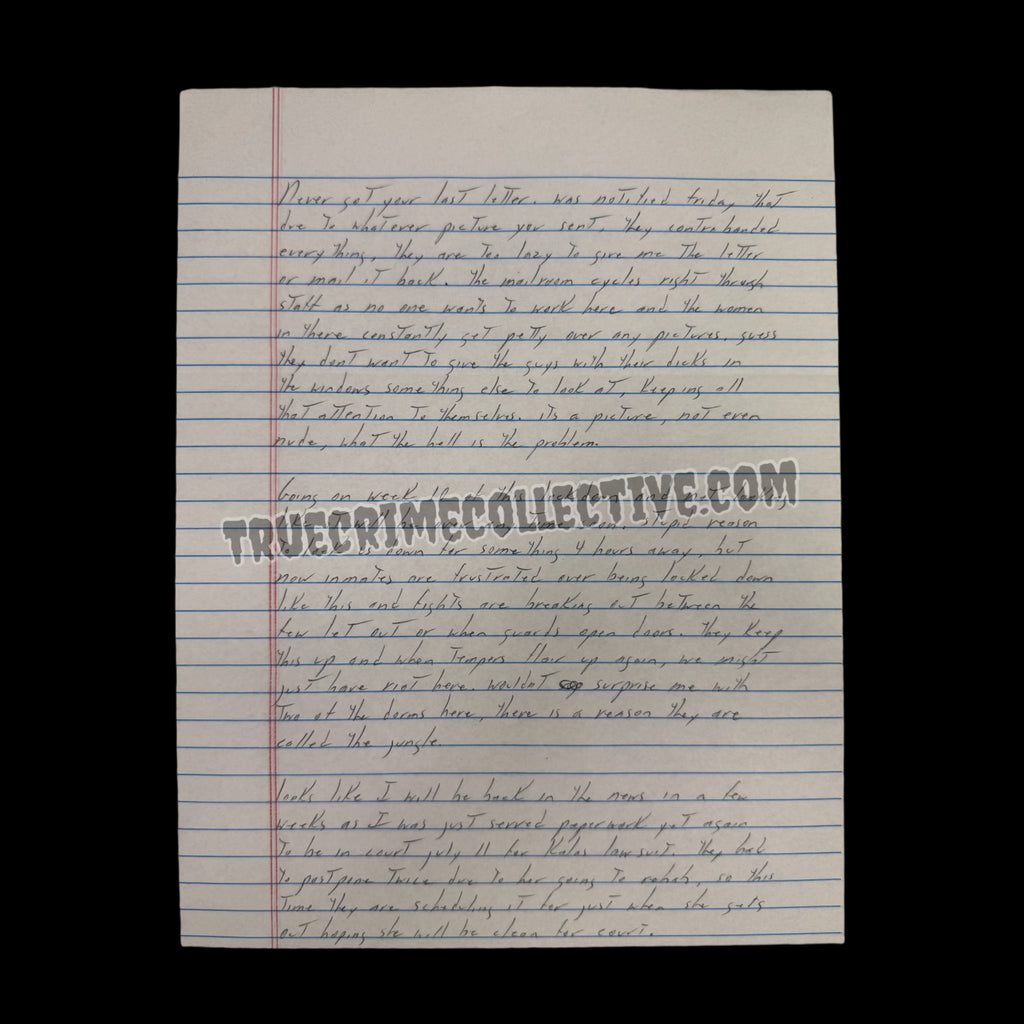 Never got your last letter. was notified friday that
due to whatever picture you sent, they contrabanded
everything, they are too lazy to give me the letter
or mail it back. The mailroom cycles right through
staff as no one wants to work here and the women
in there constantly get petty over any pictures, guess
they dont want to give the guys with their dicks in
the windows something else to look at, keeping all
that attention to themselves. its a picture, not even
nude, what the hell is the problem.
Going on week of this lockdown and not looking
like it will be over any time soon. stupid reason
TRUECRIMECOLLECTIVE.COM
to lock us down for something 4 hours away, but
now inmates are frustrated over being locked down
like this and fights are breaking out between the
few let out or when guards open doors. they keep
this up and when tempers flair up again, we might
just have riot here. wouldnt surprise me with
two of the dorms here, there is a reason they are
called the jungle.
looks like I will be back in the news in a few
weeks as I was just served paperwork yet again
to be in court july 11 for Kalas lawsuit. they had
to postpone twice due to her going to rehab, so this
time they are scheduling it for just when she gets
out hoping she will be clean for court.